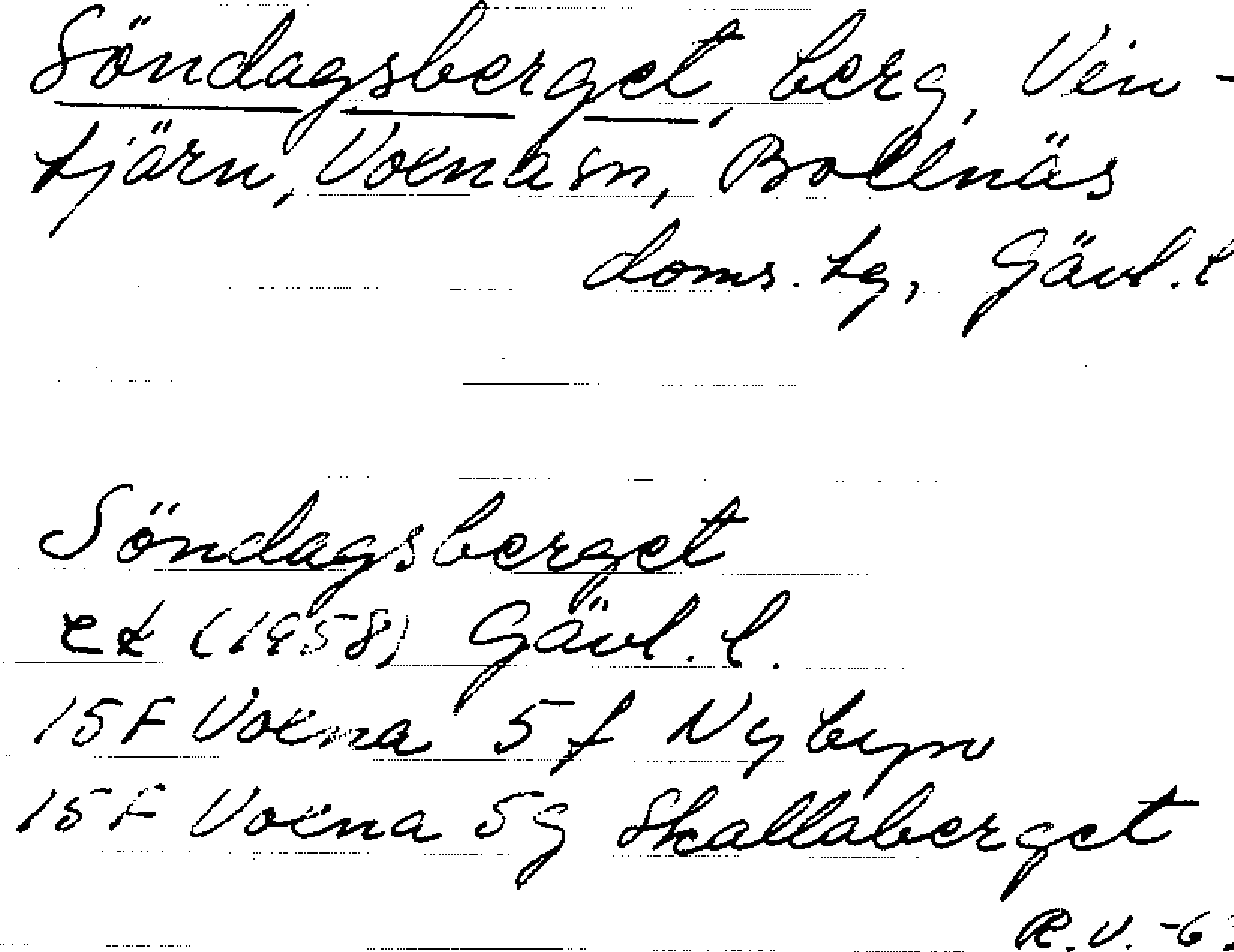 Söndagsberget, berg, Vin-
tjärn, Voxna sn, Bollnäs
doms. tg, Gävl. l
Söndagsberget
ek (1958) Gävl. l.
15F Voxna 5f Nybyn
15F Voxna 5g Skallaberget
R.V. -63